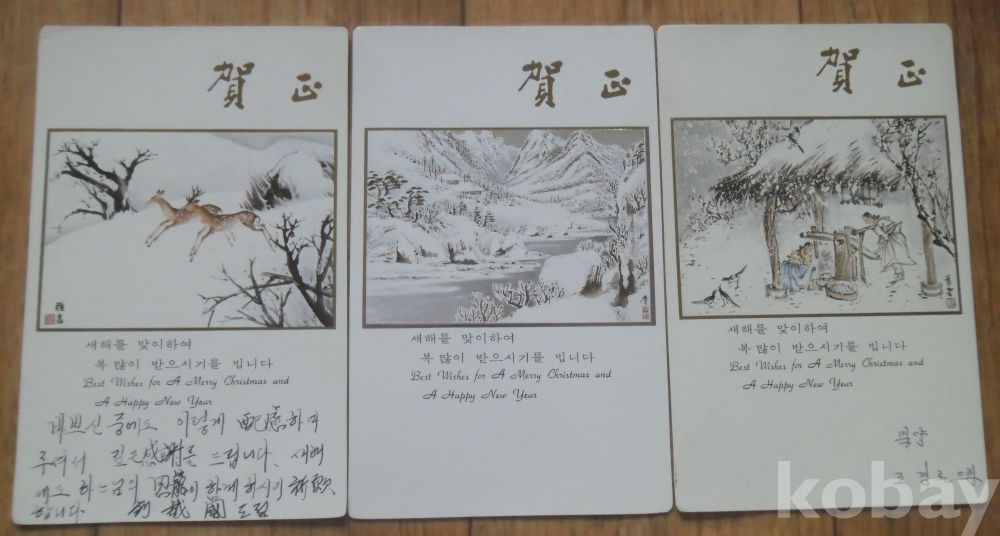 賀 正
새해를 맞이하여
복 많이 받으시기를 빕니다
Best Wishes for A Merry Christmas and
A Happy New Year
바쁘신 중에도 이렇게 配慮하여
주셔서 깊은 感謝를 드립니다. 새해
에도 하느님의 恩 이 하게 하시여 祈願
합니다. 드림
賀 正
새해를 맞이하여
복 많이 받으시기를 빕니다
Best Wishes for A Merry Christmas and
A Happy New Year
賀 正
새해를 맞이하여
복 많이 받으시기를 빕니다
Best Wishes for A Merry Christmas and
A Happy New Year
kobay